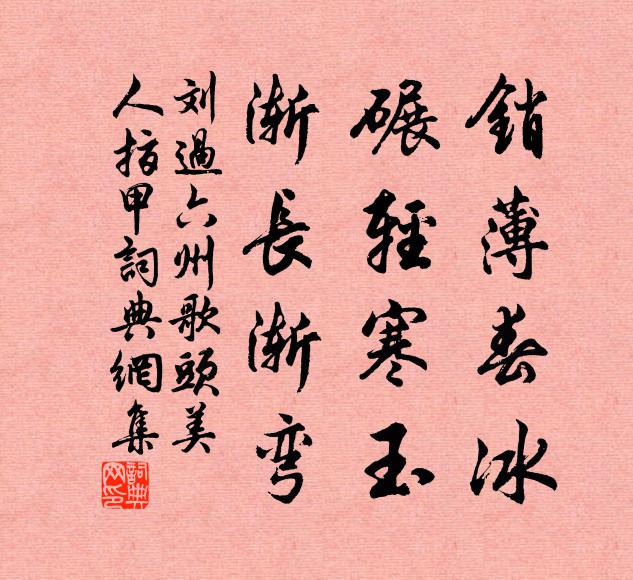 銷薄春冰
碾輕寒玉
漸長漸彎
刘過六州歌頭美
人指甲詞典網集
詞典
网印